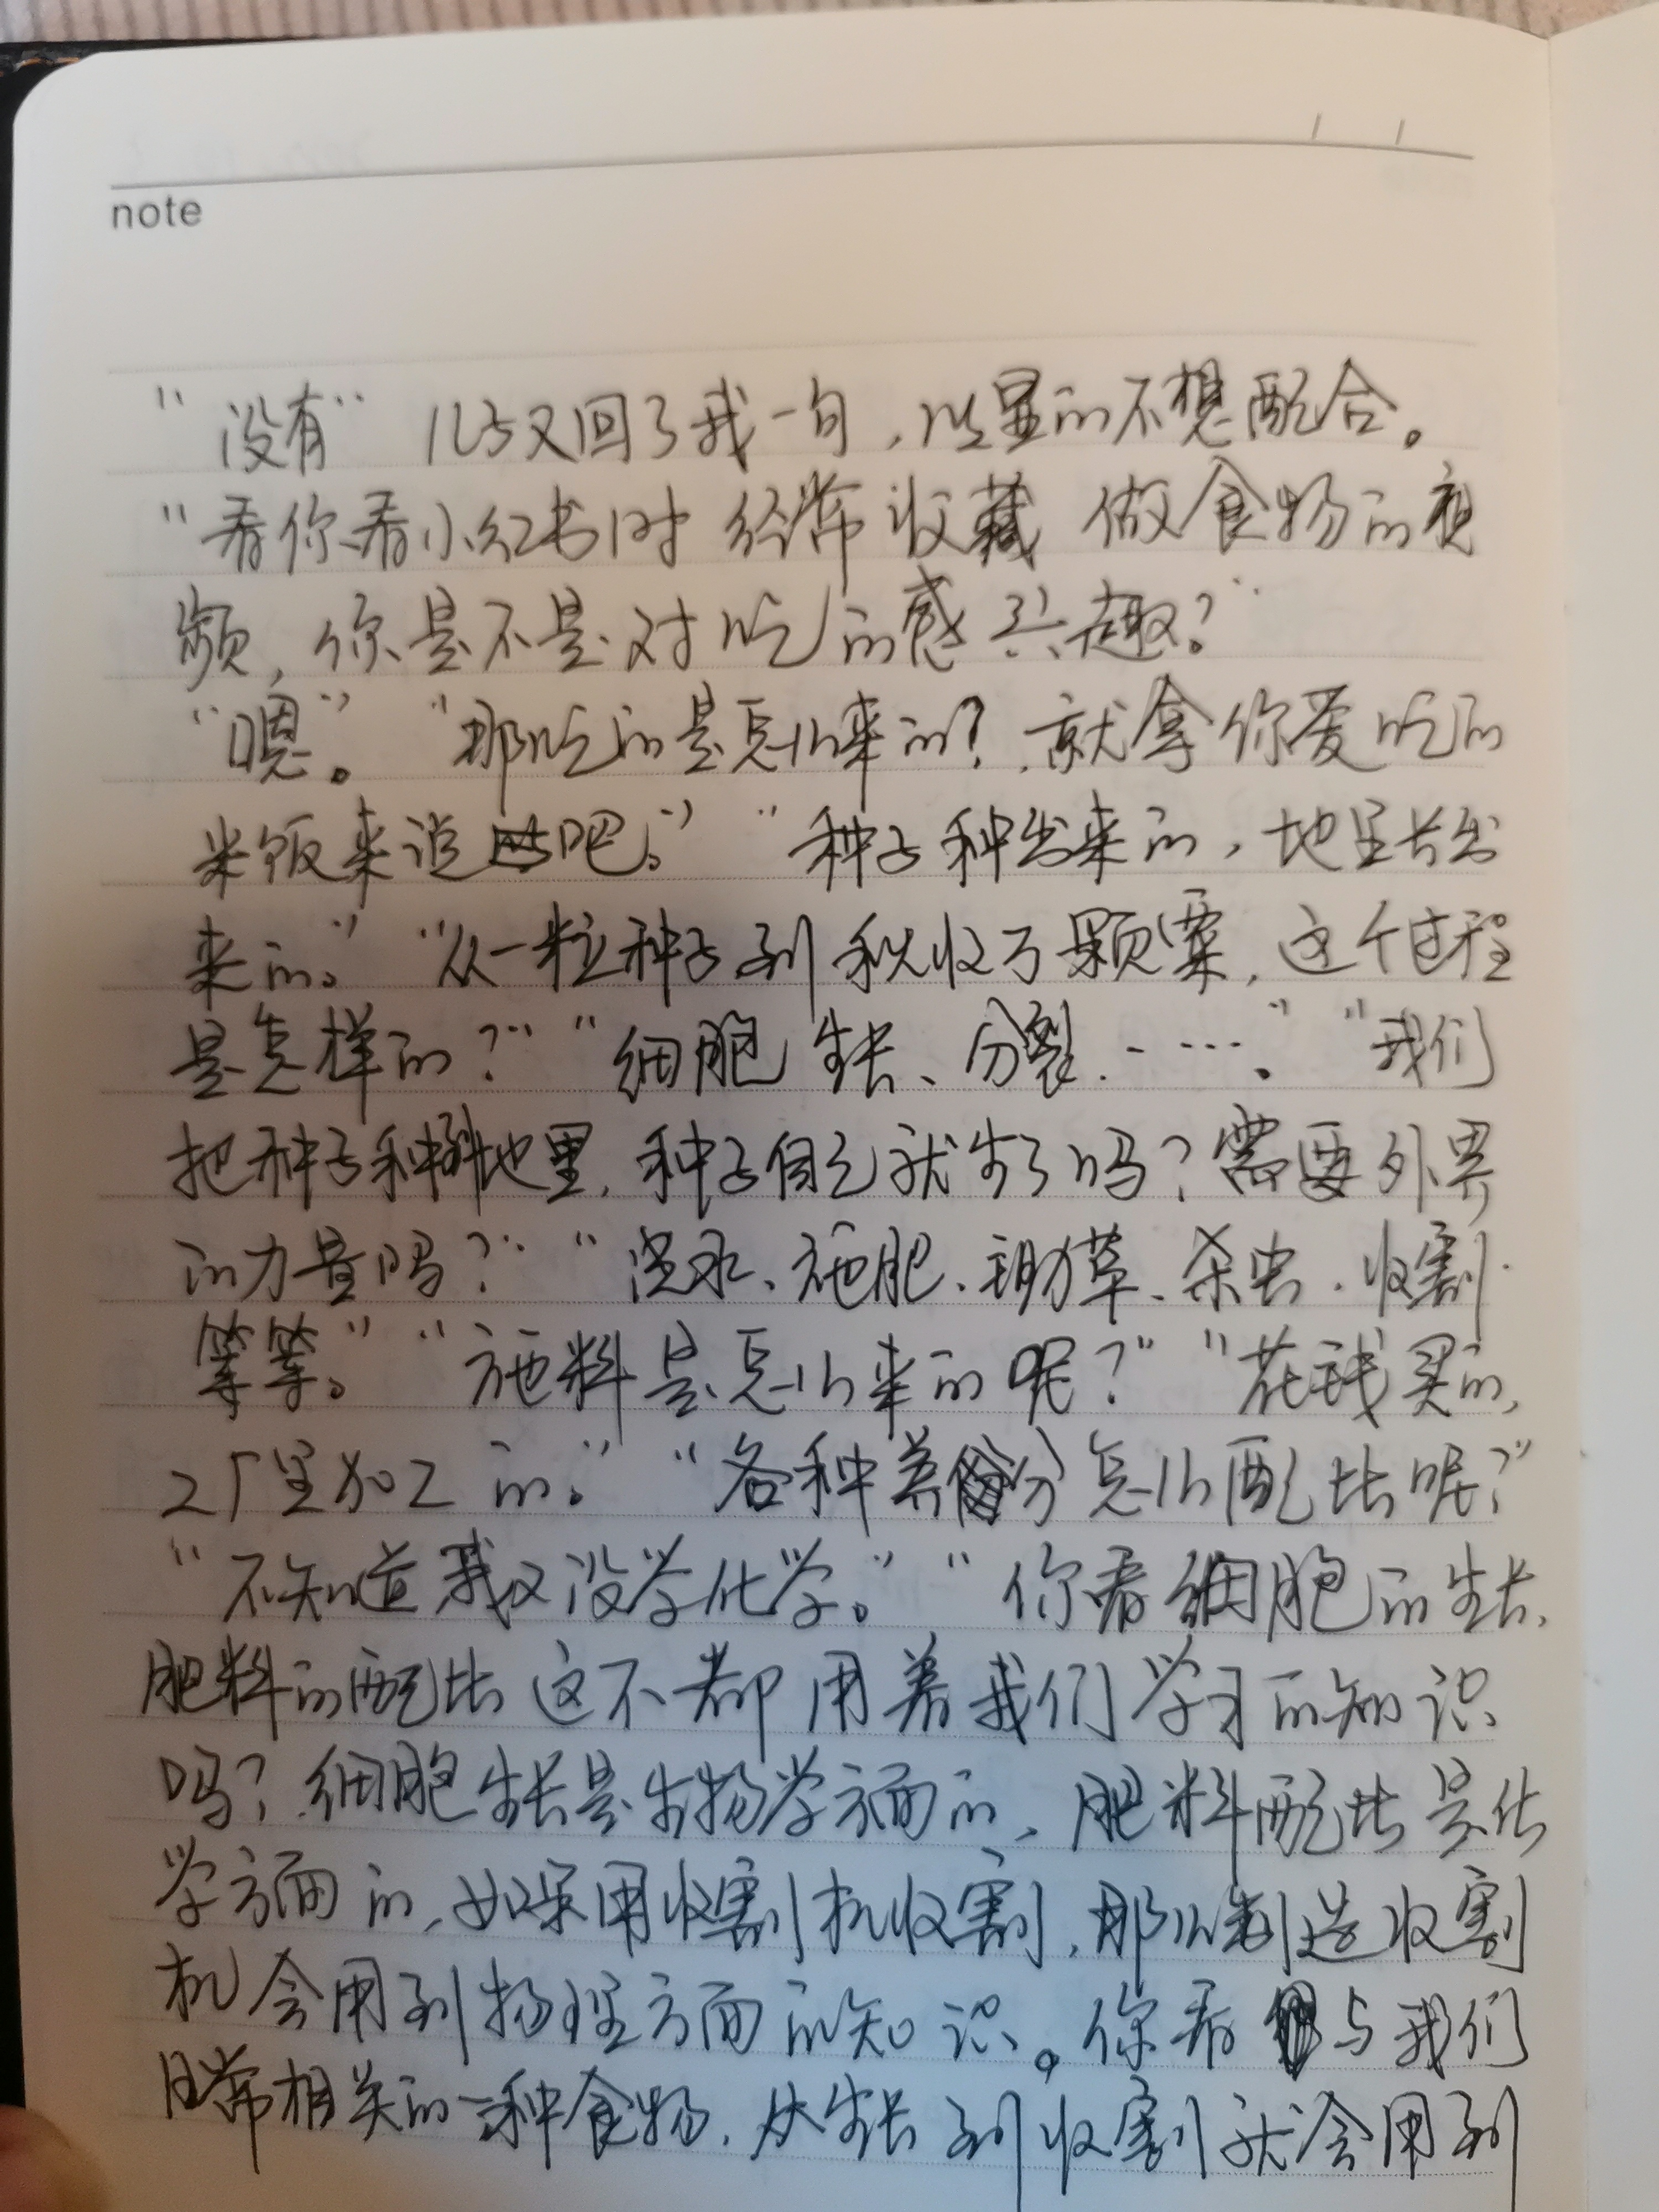 note
“没有”儿子又回了我一句，明显的不想配合。
“看你看小红书时经常收藏做食物的视
频，你是不是对吃的感兴趣？”
“嗯。”“那吃的是怎么来的？就拿你爱吃的
米饭来说吧。”“种子种出来的，地里长出
来的。”“从一粒种子到秋收万颗粟，这个过程
是怎样的？”“细胞生长、分裂……。”“我们
把种子种到地里，种子自己就生了吗？需要外界
的力量吗？”“浇水、施肥、锄草、杀虫、收割
等等。”“施料是怎么来的呢？”“花钱买的，
工厂里加工的。”“各种养分怎么配比呢？”
“不知道我又没学化学。”“你看细胞的生长，
肥料的配比这不都用着我们学习的知识
吗？细胞生长是生物学方面的，肥料配比是化
学方面的，如果用收割机收割，那么制造收割
机会用到物理方面的知识。你看与我们
日常相关的一种食物，从生长到收割就会用到